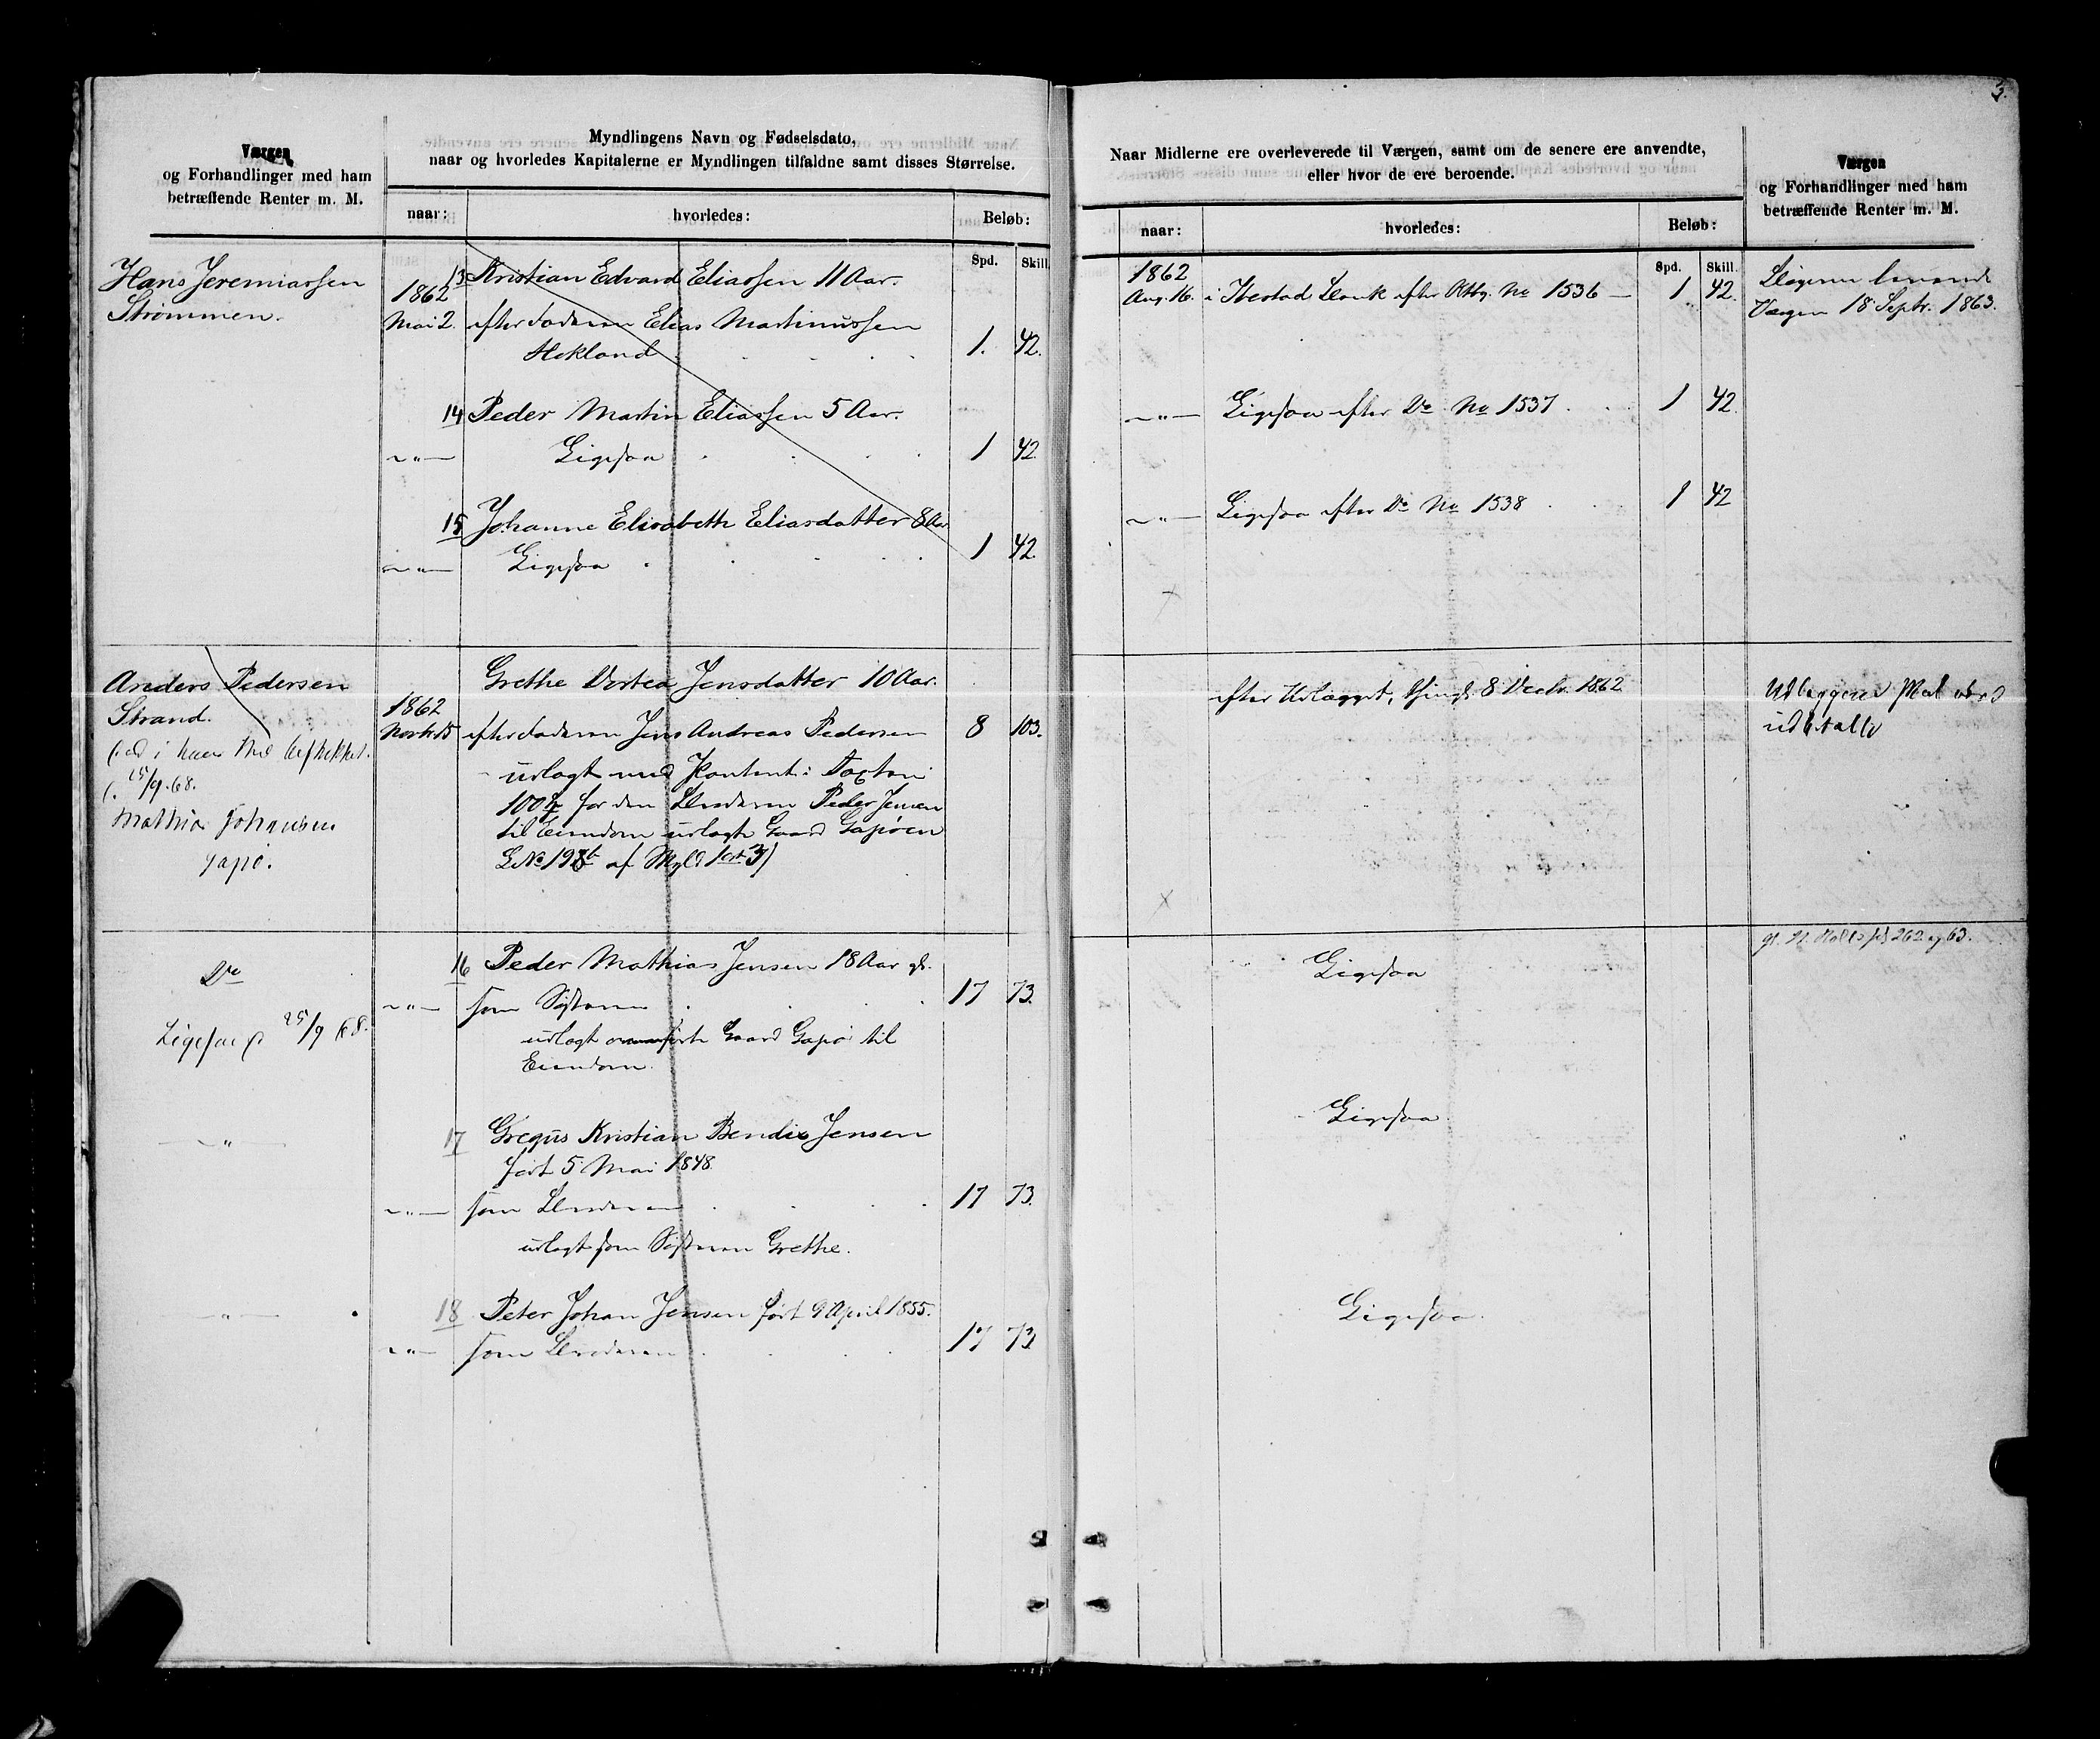 3.
Værgen
og Forhandlinger med ham
betræffende Renter m. M.
Myndlingens Navn og Fødselsdato,
naar og hvorledes Kapitalerne er Myndlingen tilfaldne samt disses Størrelse.
naar:
hvorledes:
Beløb:
Spd.
Skill.
Hans Jeremiassen
Strømmen.
1862
Mai 2.
13 Kristian Edvard Eliassen 11 Aar.
efter Faderen Elias Martinussen
Hokland 1. 42.
14 Peder Martin Eliassen 5 Aar.
— " — Ligesaa 1 42.
15 Johanne Elisabeth Eliasdatter 8 Aar
— " — Ligesaa 1 42.
Anders Pedersen
Strand.
25/9.68.
Mathias Johansen
Gapø.
1862
Novbr 15
Grethe Dortea Jensdatter 10 Aar.
efter Faderen Jens Andreas Pedersen 8 103.
udlagt med Pantert i
100 for den Broderen Peder Jensen
til Eiendom udlagte Gaard Gapøen
LNo 198b af Skyld 1 ort 3)
Do
Ligesaa 25/9 68.
16 Peder Mathias Jensen 18 Aar gl.
— " — som Søsteren 17 73.
udlagt ovenanførte Gaard Gapø til
Eiendom.
— " —
17 Gregus Kristian Bendix Jensen
født 5 Mai 1848.
— " — som Broderen 17 73.
udlagt som Søsteren Grethe.
— " —
18 Peter Johan Jensen født 9 April 1855.
— " — som Broderen 17 73
Naar Midlerne ere overleverede til Værgen, samt om de senere ere anvendte,
eller hvor de ere beroende.
naar:
hvorledes:
Beløb:
Spd.
Skill.
Værgen
og Forhandlinger med ham
betræffende Renter m. M.
1862
Aug. 16. i Ibestad Bank efter No 1536 — 1 42.
Bøgerne
Værgen 18 Septr. 1863.
— " — Ligesaa efter Do No 1537 1 42.
— " — Ligesaa efter Do No 1538 1 42
efter Udlægget, thingl. 8 Decbr. 1862
udbetalt
262 og 63.
Ligesaa
Ligesaa
Ligesaa.